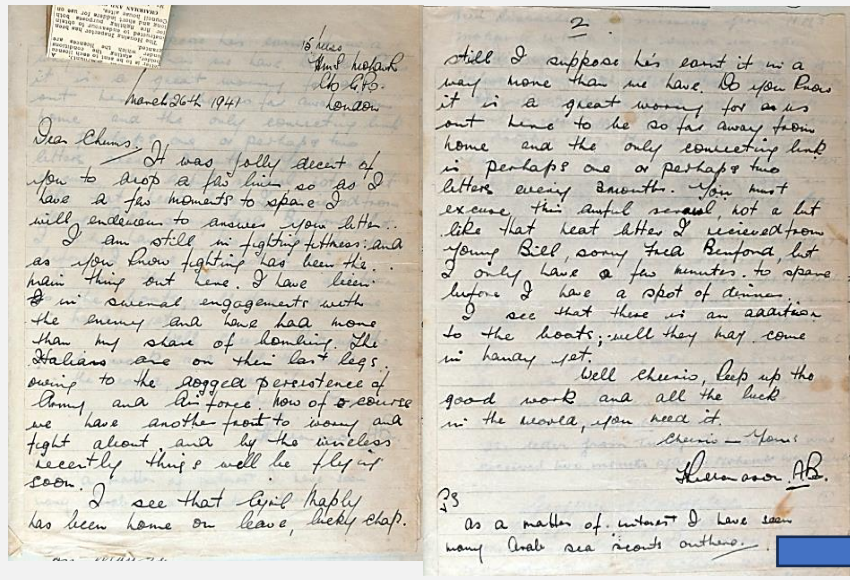 15 Mess
HMS Mohawk
C/o G.P.O.
London
March 26th 1941
Dear Chums.
It was jolly decent of
you to drop a few lines, so as I
have a few moments to spare I
will endevour to answer your letter..
I am still in fighting fitness. and
as you know fighting has been the.
main thing out here. I have been
in several engagements with
the enemy and have had more
than my share of bombing. The
Italians are on their last legs.
owing to the dogged persistence of
Army and Airforce. Now of course
we have another front to worry and
fight about, and by the wireless
recently things will be flying
soon.
I see that Cyril Maply
has been home on leave, lucky chap.
2.
still I suppose he's earnt it in a
way more than we have. Do you know
it is a great worry for us
out here to be so far away from
home and the only connecting link
is perhaps one or perhaps two
letters every 3months. You must
excuse this awful scrawl, not a bit
like that neat letter I recieved from
young Bill, sorry Fred Benford, but
I only have a few minutes. to spare
before I have a spot of dinner.
I see that there is an addition
to the boats; well they may come
in handy yet.
Well Cheerio, keep up the
good work and all the luck
in the world, you need it.
Cheerio — Yours
A.B.
PS
As a matter of interest I have seen
many Arab sea scouts outhere.